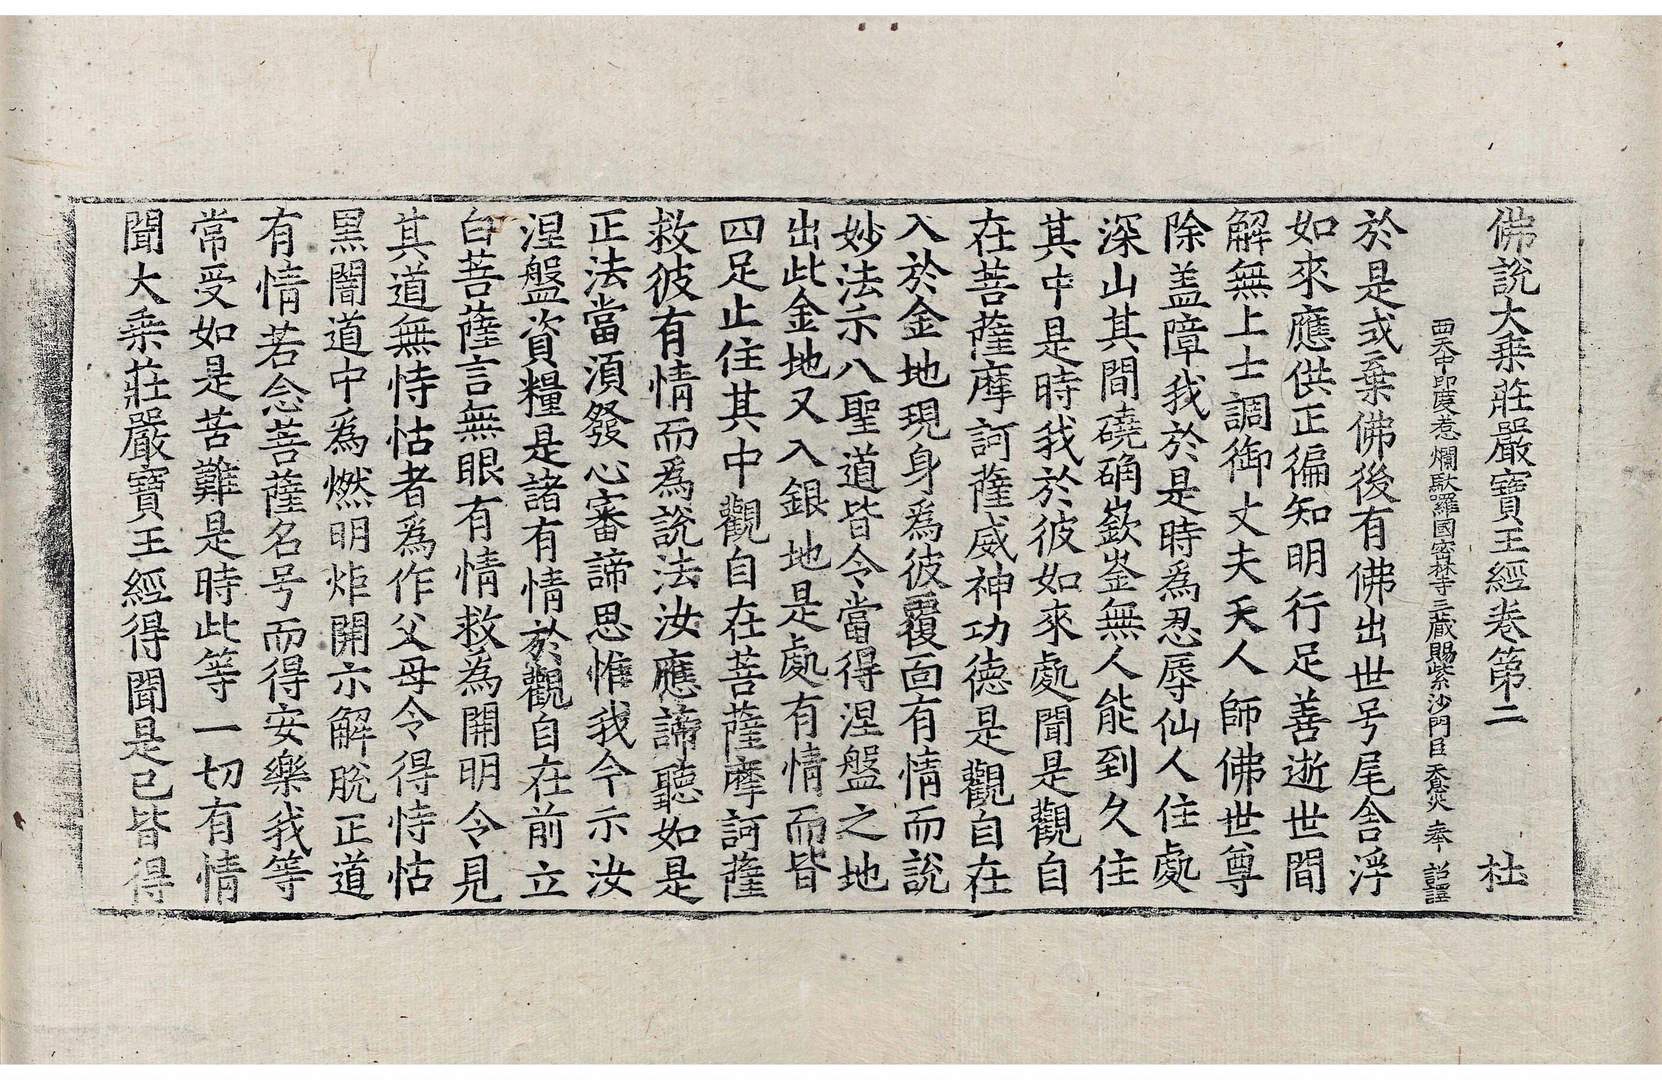 佛說大乘莊嚴寶王經卷第二 杜
西天中印度惹爛馱羅國密林寺三藏賜紫沙門臣天息灾奉 詔譯
於是或棄佛後有佛出世号尾舍浮
如來應供正徧知明行足善逝世間
解無上士調御丈夫天人師佛世尊
除盖障我於是時爲忍辱仙人住處
深山其間磽确嶔崟無人能到久住
其中是時我於彼如來處聞是觀自
在菩薩摩訶薩威神功德是觀自在
入於金地現身爲彼覆面有情而說
妙法示八聖道皆令當得涅盤之地
出此金地又入銀地是處有情而皆
四足止住其中觀自在菩薩摩訶薩
救彼有情而爲說法汝應諦聽如是
正法當須發心審諦思惟我今示汝
涅盤資糧是諸有情於觀自在前立
白菩薩言無眼有情救爲開明令見
其道無恃怙者爲作父母令得恃怙
黑闇道中爲燃明炬開示解脫正道
有情若念菩薩名号而得安樂我等
常受如是苦難是時此等一切有情
聞大乘莊嚴寶王經得聞是已皆得